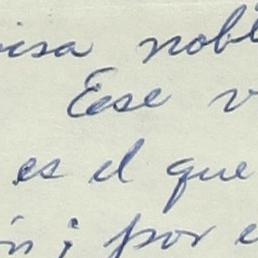 isa nobl
Ese v
es el que
in; por e